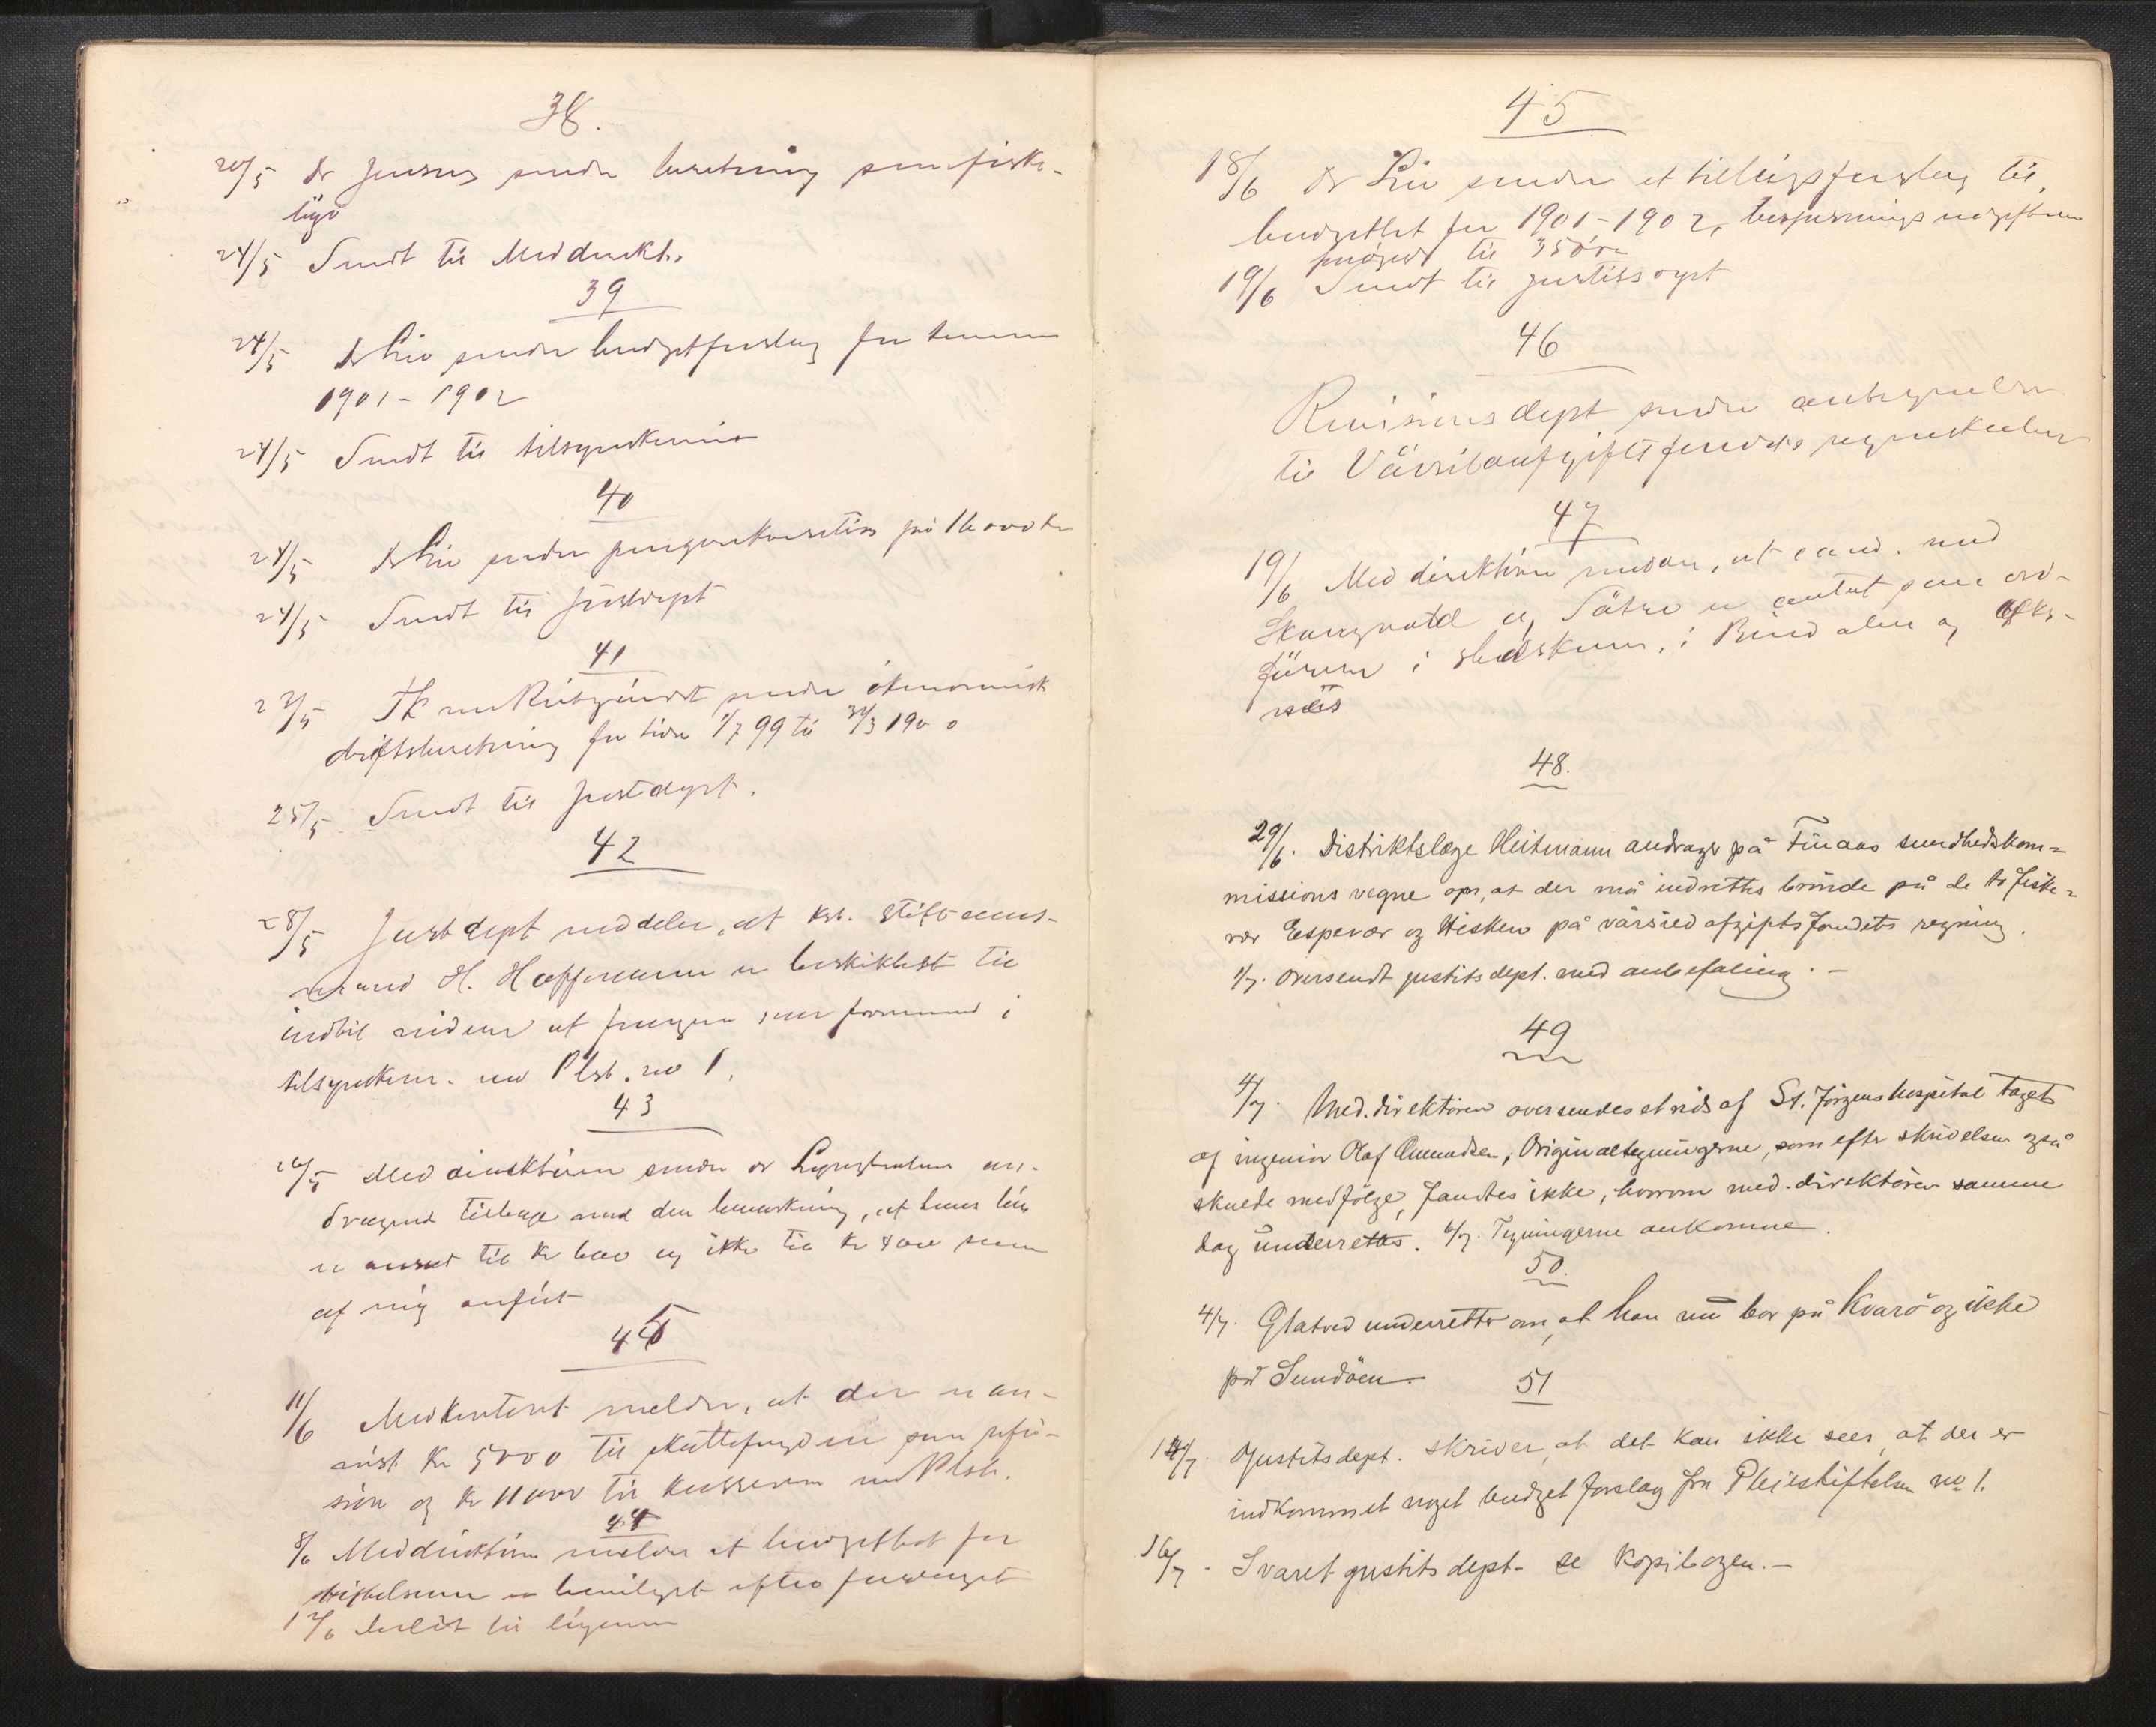 38.
20/5 Dr Jensens sender beretning som fiske-
läge
24/5 Sendt til Meddirekt.
39
24/5 Dr Lie sender budgetforslag for termin
1901-1902
24/5 Sendt til tilsynskomis
40
24/5 Dr Lie sender pengerekvisition på 16000 kr
24/5 Sendt til justdept
41
Reitgjärdet sender ökonomisk
driftsberetning for tiden 1/7 99 til 31/3 1900
25/5 Sendt til justdept.
42
28/5 Justdept meddeler, at kst. stiftsamt-
mand H. Hoffmann er beskikket til
indtil videre at fungere som formand i
tilsynskom. ved Plst. no 1.
43
Meddirektören sender dr Lyngholms an-
dragende tilbage med den bemerkning, at hans lön
er ansat til kr og ikke til kr som
af mig anfört
45
11/6 Medkontoret melder, at der er an-
vist kr 5000 til skattefogden som refu-
sion og kr 11000 til kassereren ved Plst.
44
8/6 Meddirektören melder at budgettet for
stiftelserne er bevilget efter forslaget
12/6 til lägerne
45
18/6 Dr Lie sender et tillägsforslag til
budgettet for 1901-1902, bespisningsudgifterne
til 35 öre
19/6 Sendt til justitsdept
46
Revisionsdept sender antegnelser
til Vårsildafgiftsfondets regnskaber
47
19/6 Meddirektören at cand. med
og Sätre er antat som ord-
förere i sundskom. i Bindalen og
näs
48.
29/6. Distriktslæge Heitmann andrager på Finaas sundhedskom=
missions vegne om, at der må indrettes brönde på de to fiske=
vær Espevær og Hisken på vårsildafgiftsfondets regning.
1/7. Oversendt justitsdept. med anbefaling. –
49
4/7. Med. direktören oversendes et rids af St. Jörgens hospital taget
af ingeniör Olaf Amundsen, Originaltegningerne, som efter skrivelsen også
skulde medfölge, fandtes ikke, hvorom med. direktören samme
dag underrettes. 6/7. Tegningerne ankomne.
50.
4/7. Glatved underretter om, at han nu bor på Kvarö og ikke
på Sundöen.
51
14/7. Justitsdept. skriver, at det kan ikke sees, at der er
indkommet noget budgetforslag fra Pleiestiftelsen no 1.
16/7 - Svaret justitsdept. se kopibogen. –